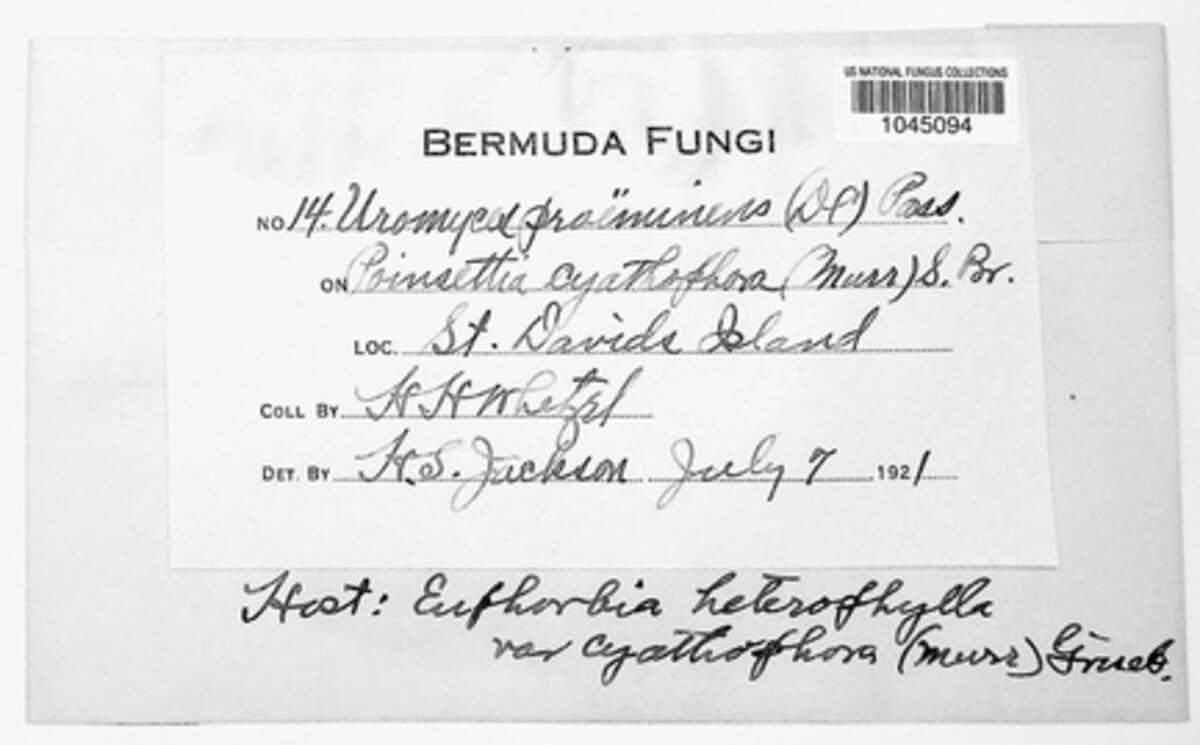 US NATIONAL FUNGUS COLLECTIONS
1045094
BERMUDA FUNGI
NO. 14. Uromyces proëminens (DC) Pass.
ON Poinsettia cyathophora (Murr) S. Br.
LOC. St. Davids Island
COLL BY H H Whetzel
DET. BY H.S. Jackson July 7 1921
Host: Euphorbia heterophylla
var cyathophora (Murr) Griseb.